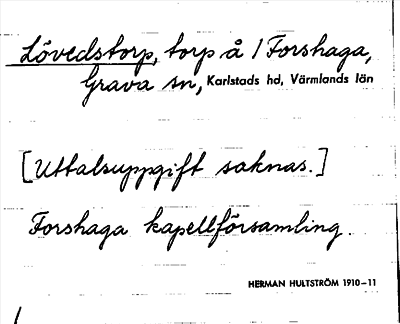 Lövedstorp, torp å / Forshaga,
Grava sn, Karlstads hd, Värmlands län
[Uttalsuppgift saknas.]
Forshaga kapellförsamling.
HERMAN HULTSTRÖM 1910–11